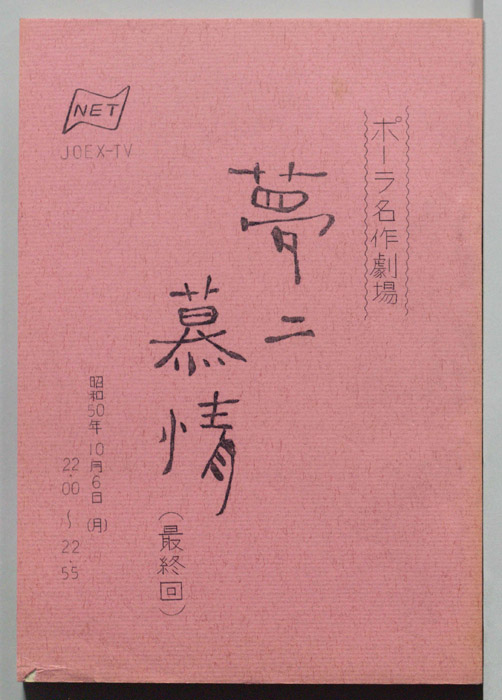 ポーラ名作劇場
夢二
慕情
(最終回)
NET
JOEX-TV
昭和50年10月6日(月)
22.00〜22.55